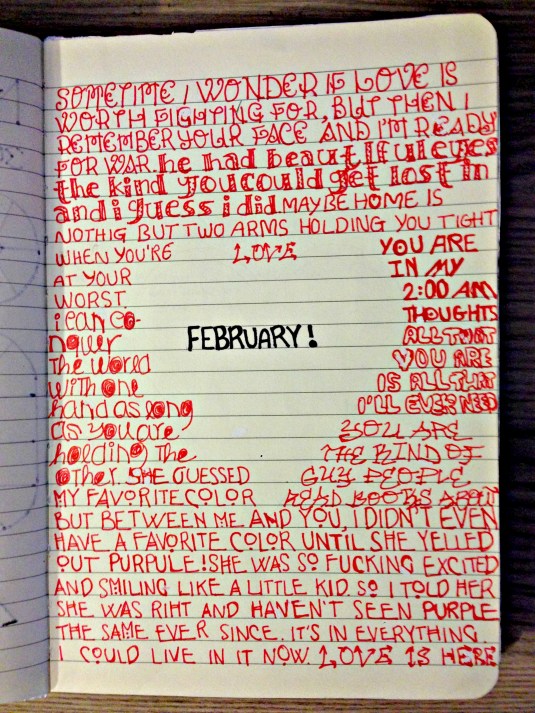 SOMETIME I WONDER IF LOVE IS
WORTH FIGHTING FOR, BUT THEN I
REMEMBER YOUR FACE AND I'M READY
FOR WAR. he had beautiful eyes
the kind you could get lost in
and i guess i did MAYBE HOME IS
NOTHIG BUT TWO ARMS HOLDING YOU TIGHT
WHEN YOU'RE
AT YOUR
WORST.
i can co-
nquer
the world
with one
hand as long
as you are
holding the
other. SHE GUESSED
LOVE
FEBRUARY!
YOU ARE
IN MY
2:00 AM
THOUGHTS
ALL THAT
YOU ARE
IS ALL THAT
I'LL EVER NEED
YOU ARE
THE KIND OF
GUY PEOPLE
READ BOOKS ABOUT
MY FAVORITE COLOR
BUT BETWEEN ME AND YOU, I DIDN'T EVEN
HAVE A FAVORITE COLOR UNTIL SHE YELLED
OUT PURPULE! SHE WAS SO FUCKING EXCITED
AND SMILING LIKE A LITTLE KID. SO I TOLD HER
SHE WAS RIHT AND HAVEN'T SEEN PURPLE
THE SAME EVER SINCE. IT'S IN EVERYTHING.
I COULD LIVE IN IT NOW. LOVE IS HERE